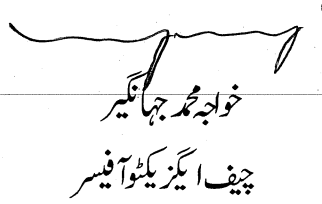 خواجہ محمد جہانگیر
چیف ایگزیکٹو آفیسر